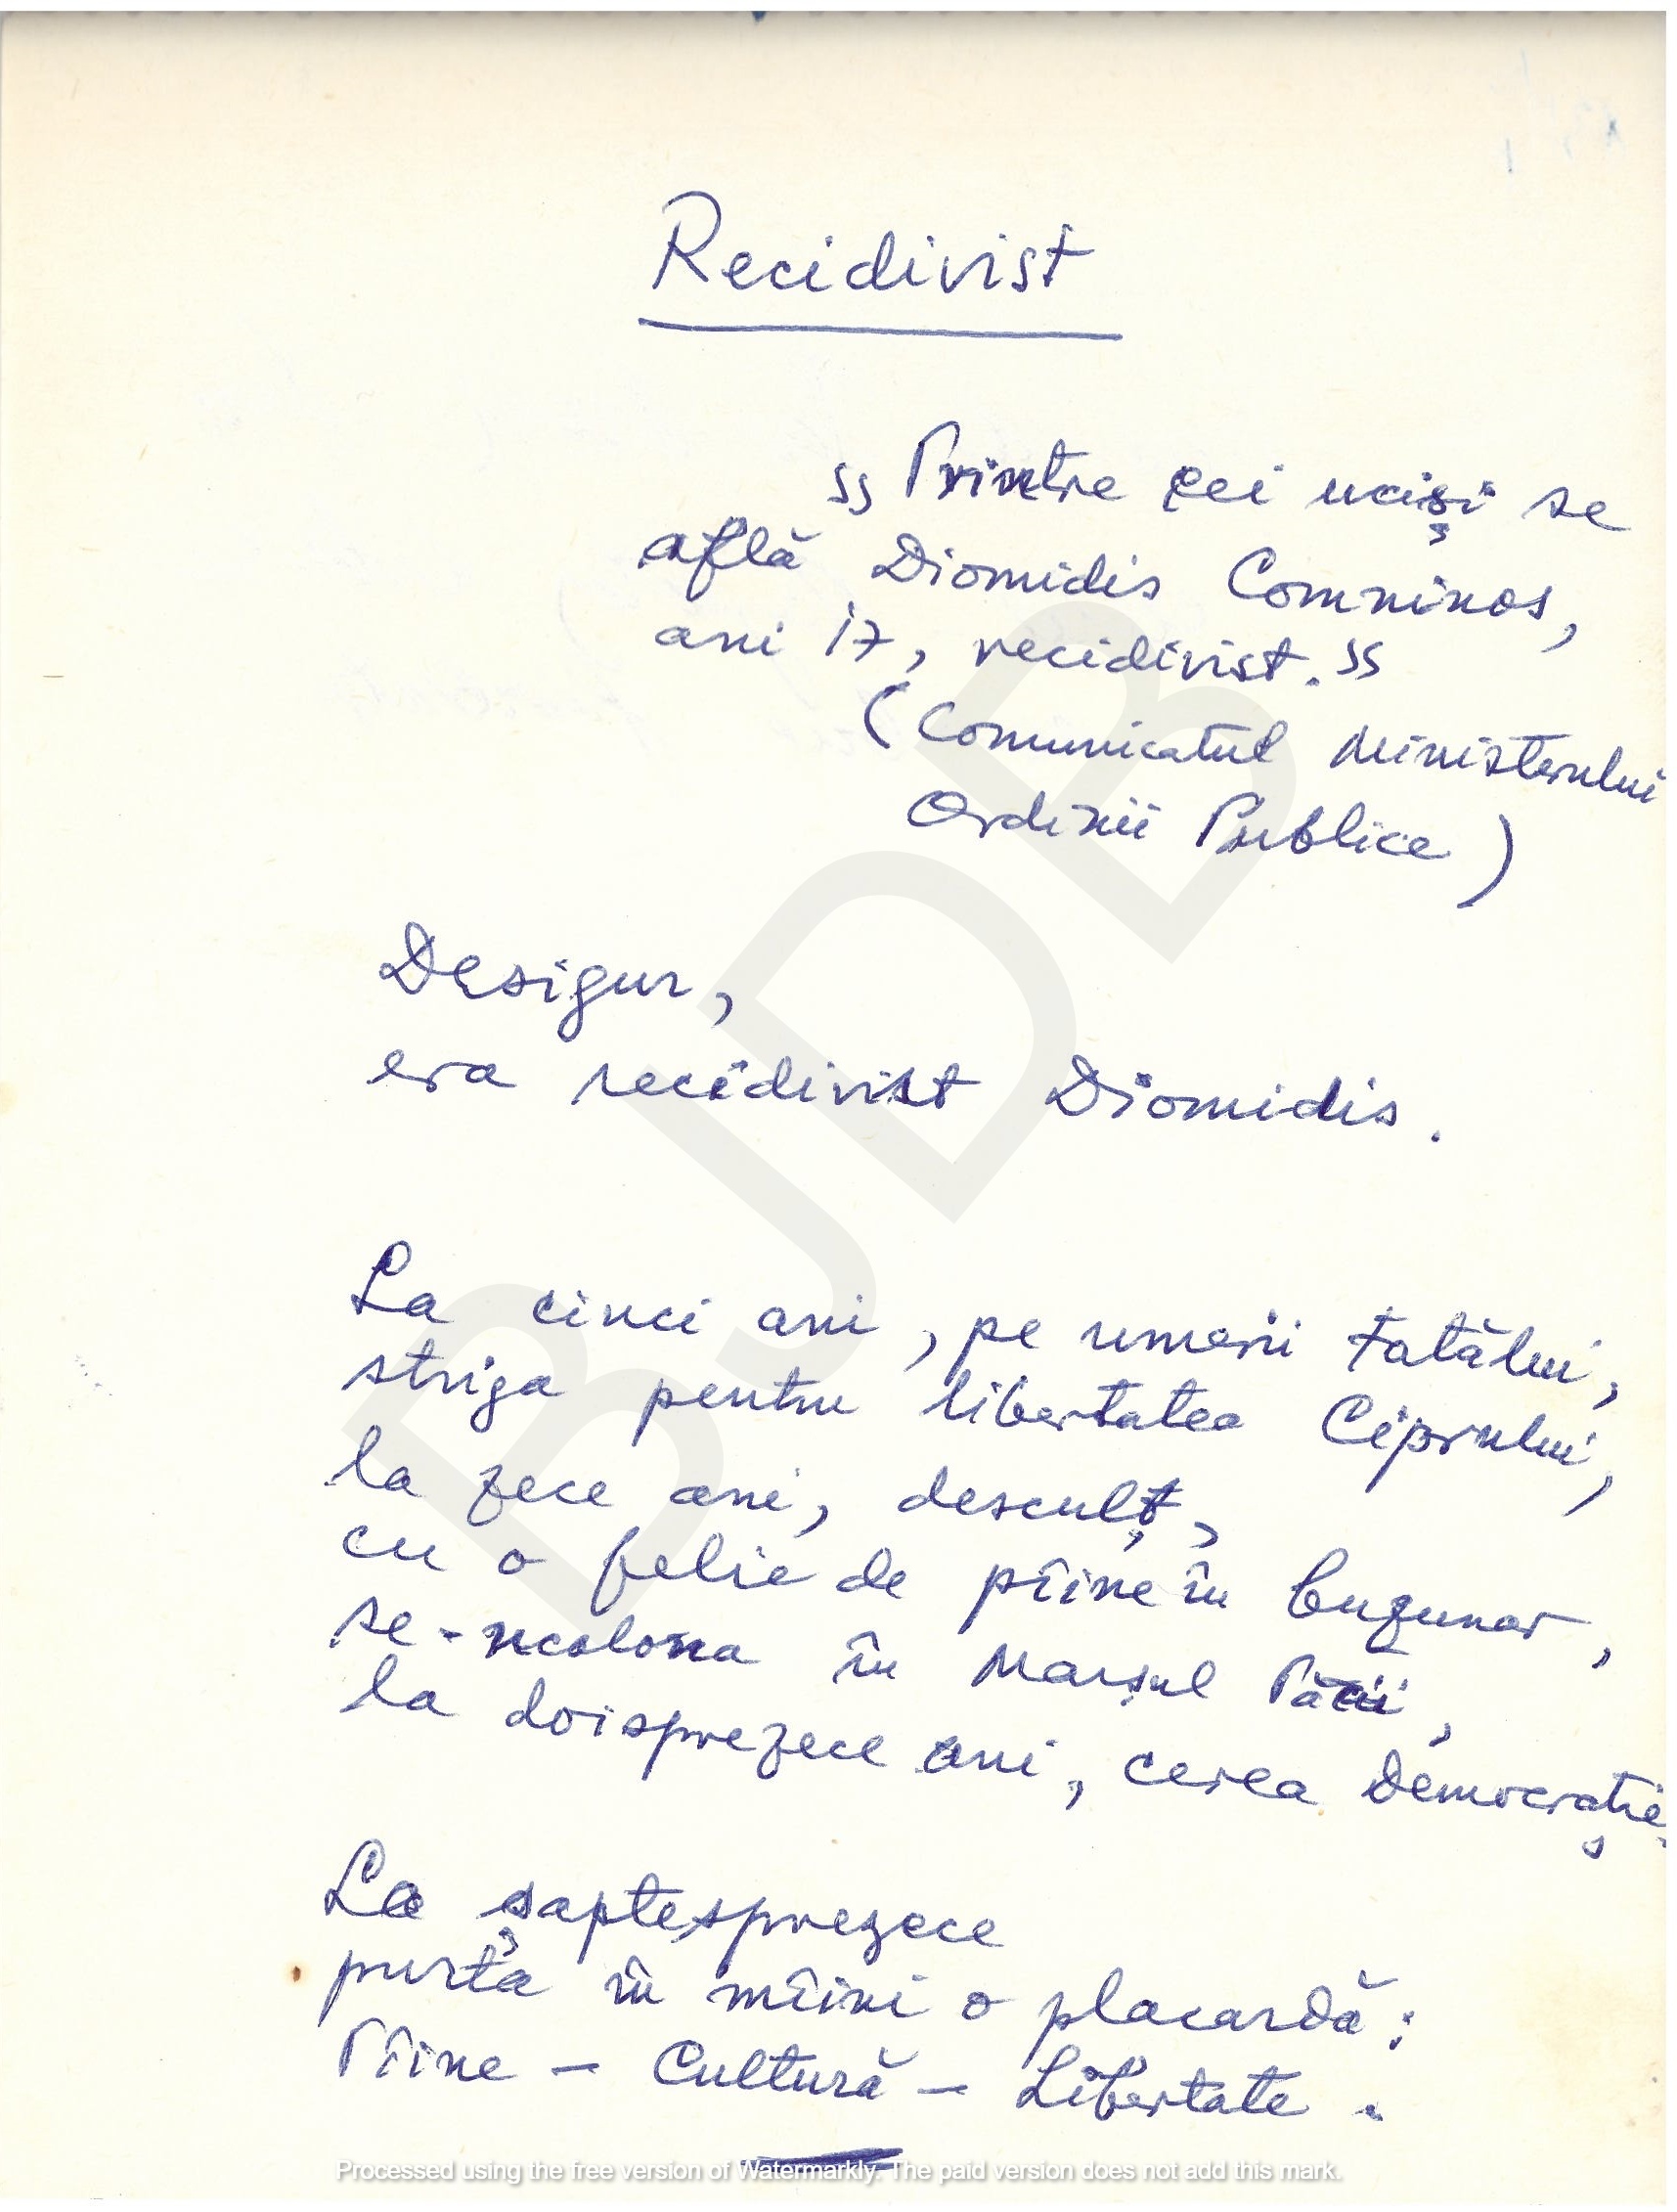 Recidivist
„Printre cei uciși se
află Diomidis Comninos,
ani 17, recidivist.”
(Comunicatul Ministerului
Ordinii Publice)
Desigur,
era recidivist Diomidis.
La cinci ani, pe umerii Tatălui,
striga pentru libertatea Ciprului,
la zece ani, desculț,
cu o felie de pîine în buzunar,
se-ncolona în Marșul Păcii,
la doisprezece ani, cerea Democrație.
La șaptesprezece
purta în mîini o placardă:
Pîine – Cultură – Libertate.
BJDB
Processed using the free version of Watermarkly. The paid version does not add this mark.